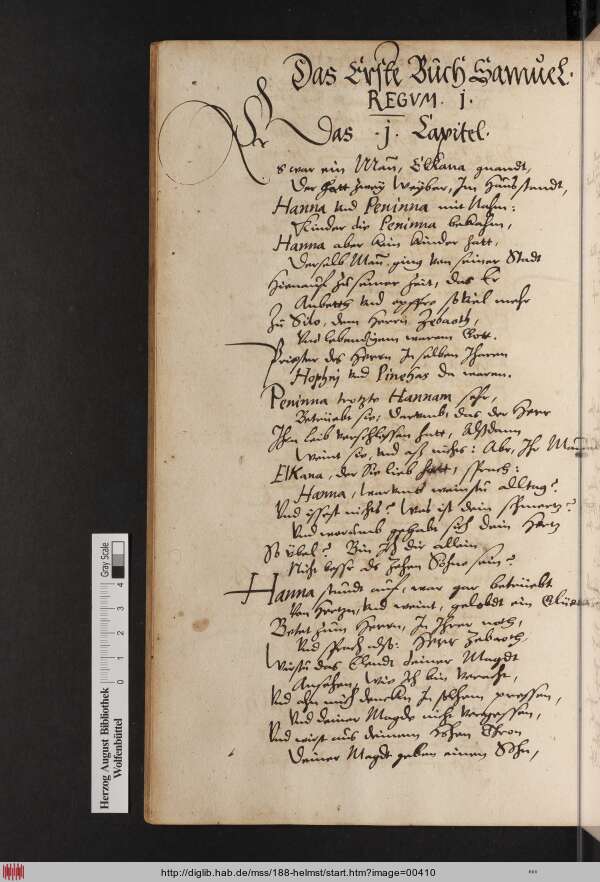 Das Erste Buch Samuel.
REGVM. I.
Das .j. Capitel.
Es war ein Man, Elkana gnandt,
Der hatt zwey Weyber, Im Haus standt,
Hanna und Peninna mit Nahm:
Kinder die Peninna bekahm,
Hanna aber kein kinder hatt,
Derselb Man ging von seiner Stadt
Hienauf zu seiner Zeit, das Er
Anbette und opffre soviel mehr
Zu Silo, dem Herrn Zebaoth,
Und lebendigem warem Gott.
Priester des Herrn In selben Iharen
Hophni und Pinehas da waren.
Peninna trotzte Hannam sehr,
Betrüebt sie, darumb das der Herr
Ihn leib verschlossen hatt, Alsdann
Weint sie, und ass nichts: Aber, Ihr Man
Elkana, der Sie lieb hatt, sprach:
Hanna, warumb weinstu alltag?
Und issest nichts? Was ist dein schmertz?
Und worumb gehabt sich dein Hertz
So übel? Bin Ich dir allein
Nicht besser den zehen Söhne sein?
Hanna stundt auf, war gar betrüebt
Von Hertzen, und weint, gelobdt ein
Betet zum Herrn, In Ihrer noth,
Und sprach also: Herr Zebaoth,
Wirstu das Elendt deiner Magdt
Ansehen, Wie Ich bin veracht,
Und ahn mich dencken In solchem pressen,
Und deiner Magde nicht vergessen,
Und wirst aus deinem hohen Thron
Deiner Magdt geben einen Sohn,
Gray Scale
0 1 2 3 4
Herzog August Bibliothek
Wolfenbüttel
http://diglib.hab.de/mss/188-helmst/start.htm?image=00410